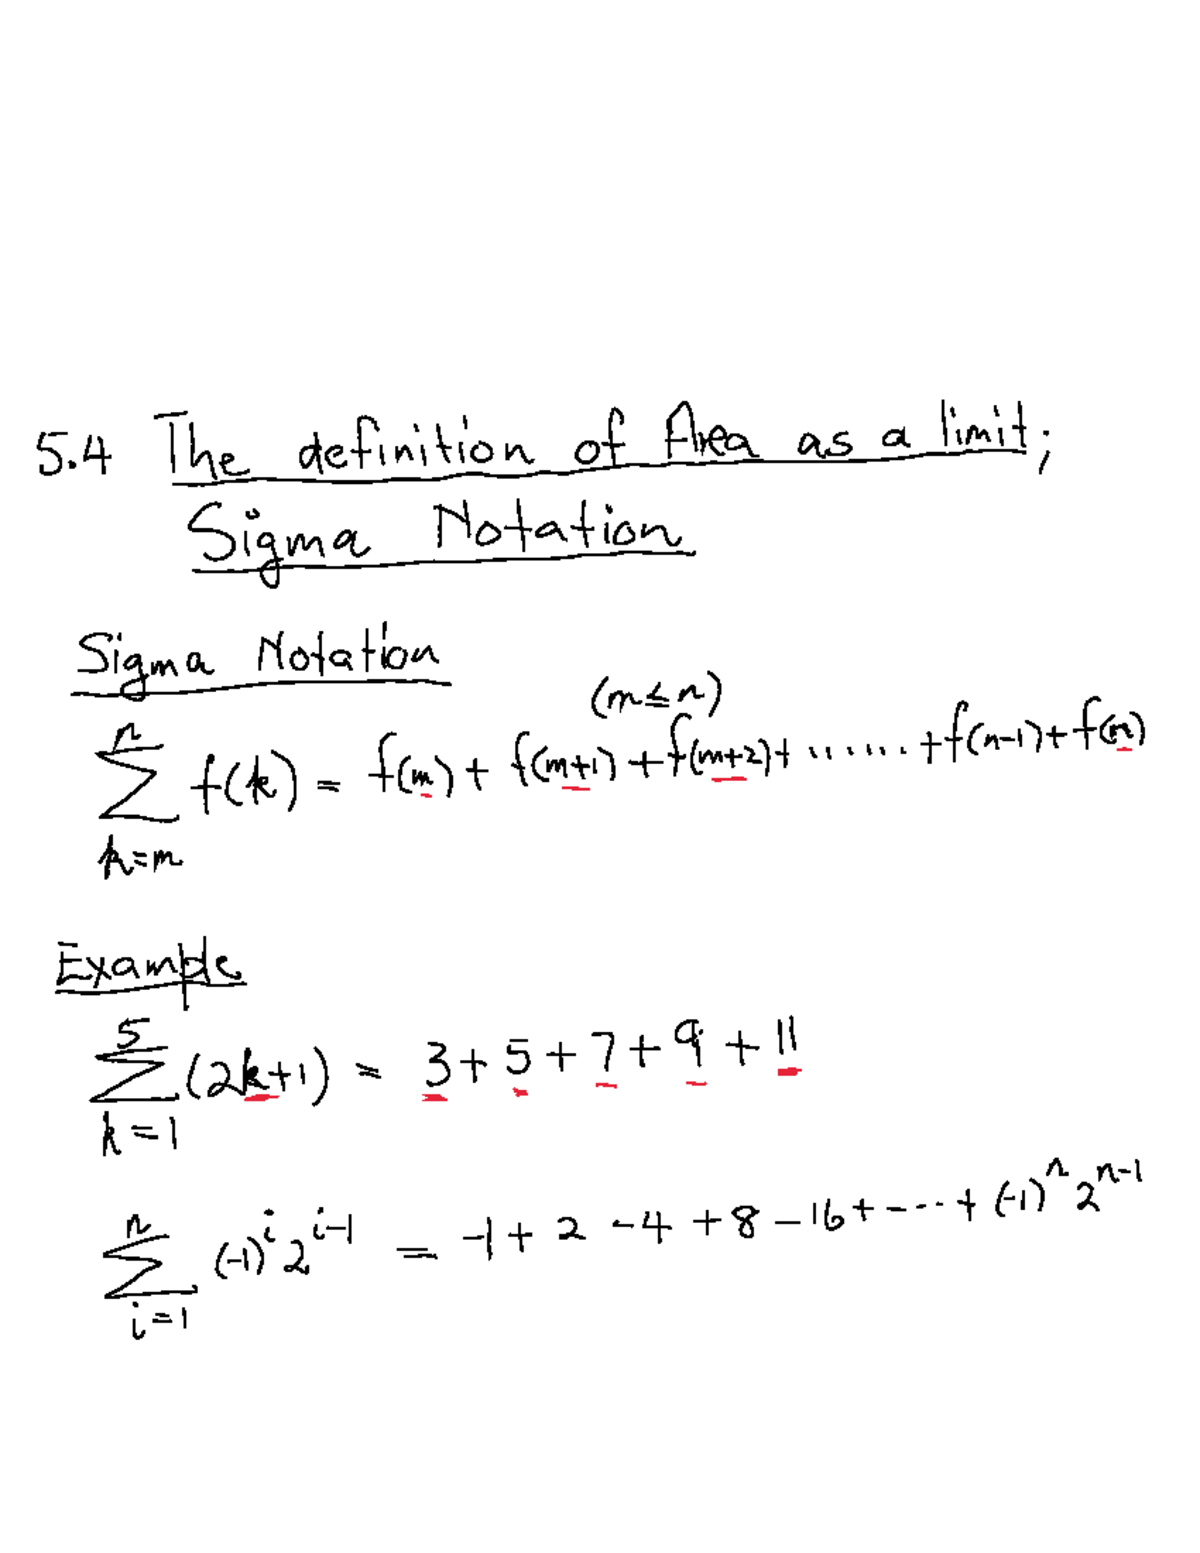 5.4 The definition of Area as a limit;
Sigma Notation
Sigma Notation
(m≤n)
n
∑ f(k) = f(m) + f(m+1) + f(m+2) + ...... + f(n-1) + f(n)
k=m
Example
5
∑ (2k+1) = 3 + 5 + 7 + 9 + 11
k=1
n
∑ (-1)^i 2^{i-1} = -1 + 2 - 4 + 8 - 16 + ---- + (-1)^n 2^{n-1}
i=1